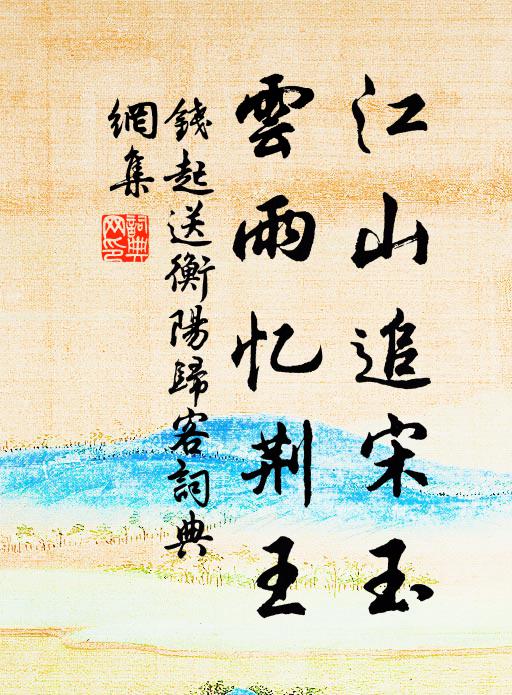 江山追宋玉
雲雨忆荆王
錢起送衡陽歸客詞典
網集
詞典
网印